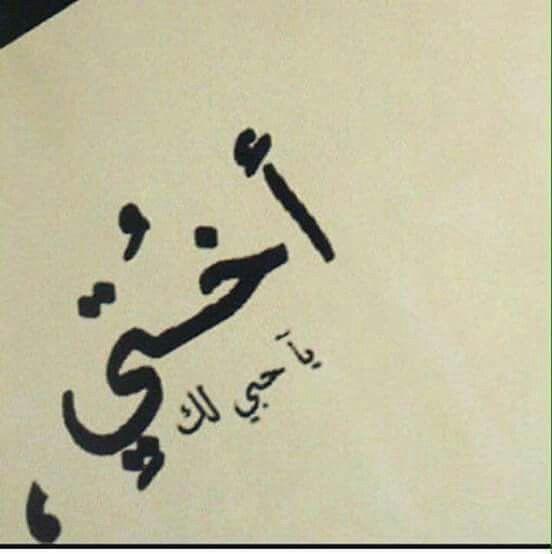 أختُي ،
يآ حبي لك